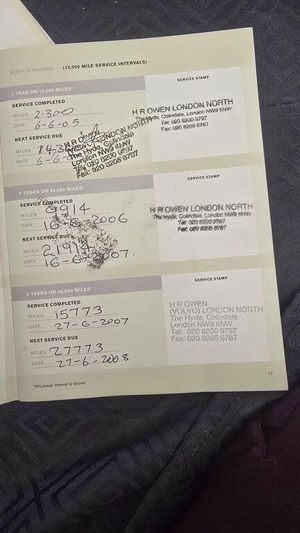 SERVICE RECORD (12,000 MILE SERVICE INTERVALS)
1 YEAR OR 12,000 MILES*
SERVICE STAMP
SERVICE COMPLETED
MILES 2300
DATE 6-6-05
NEXT SERVICE DUE
MILES
DATE
H R OWEN
(VOLVO) LONDON NORTH
The Hyde, Colindale
London NW9 6NW
Tel: 020 8200
Fax: 020 8205 6787
H R OWEN LONDON NORTH
The Hyde, Colindale, London NW9 6NW
Tel: 020 8200 9797
Fax: 020 8205 6787
2 YEARS OR 24,000 MILES*
SERVICE STAMP
SERVICE COMPLETED
MILES 9914
DATE 16-6-2006
NEXT SERVICE DUE
MILES 21914
DATE 16-6-2007
H R OWEN LONDON NORTH
The Hyde, Colindale, London NW9 6NW
Tel: 020 8200 9797
Fax: 020 8205 6787
3 YEARS OR 36,000 MILES*
SERVICE STAMP
SERVICE COMPLETED
MILES 15773
DATE 27-6-2007
NEXT SERVICE DUE
MILES 27773
DATE 27-6-2008
H R OWEN
(VOLVO) LONDON NORTH
The Hyde, Colindale
London NW9 6NW
Tel: 020 8200 9797
Fax: 020 8205 6787
*Whichever interval is sooner
17